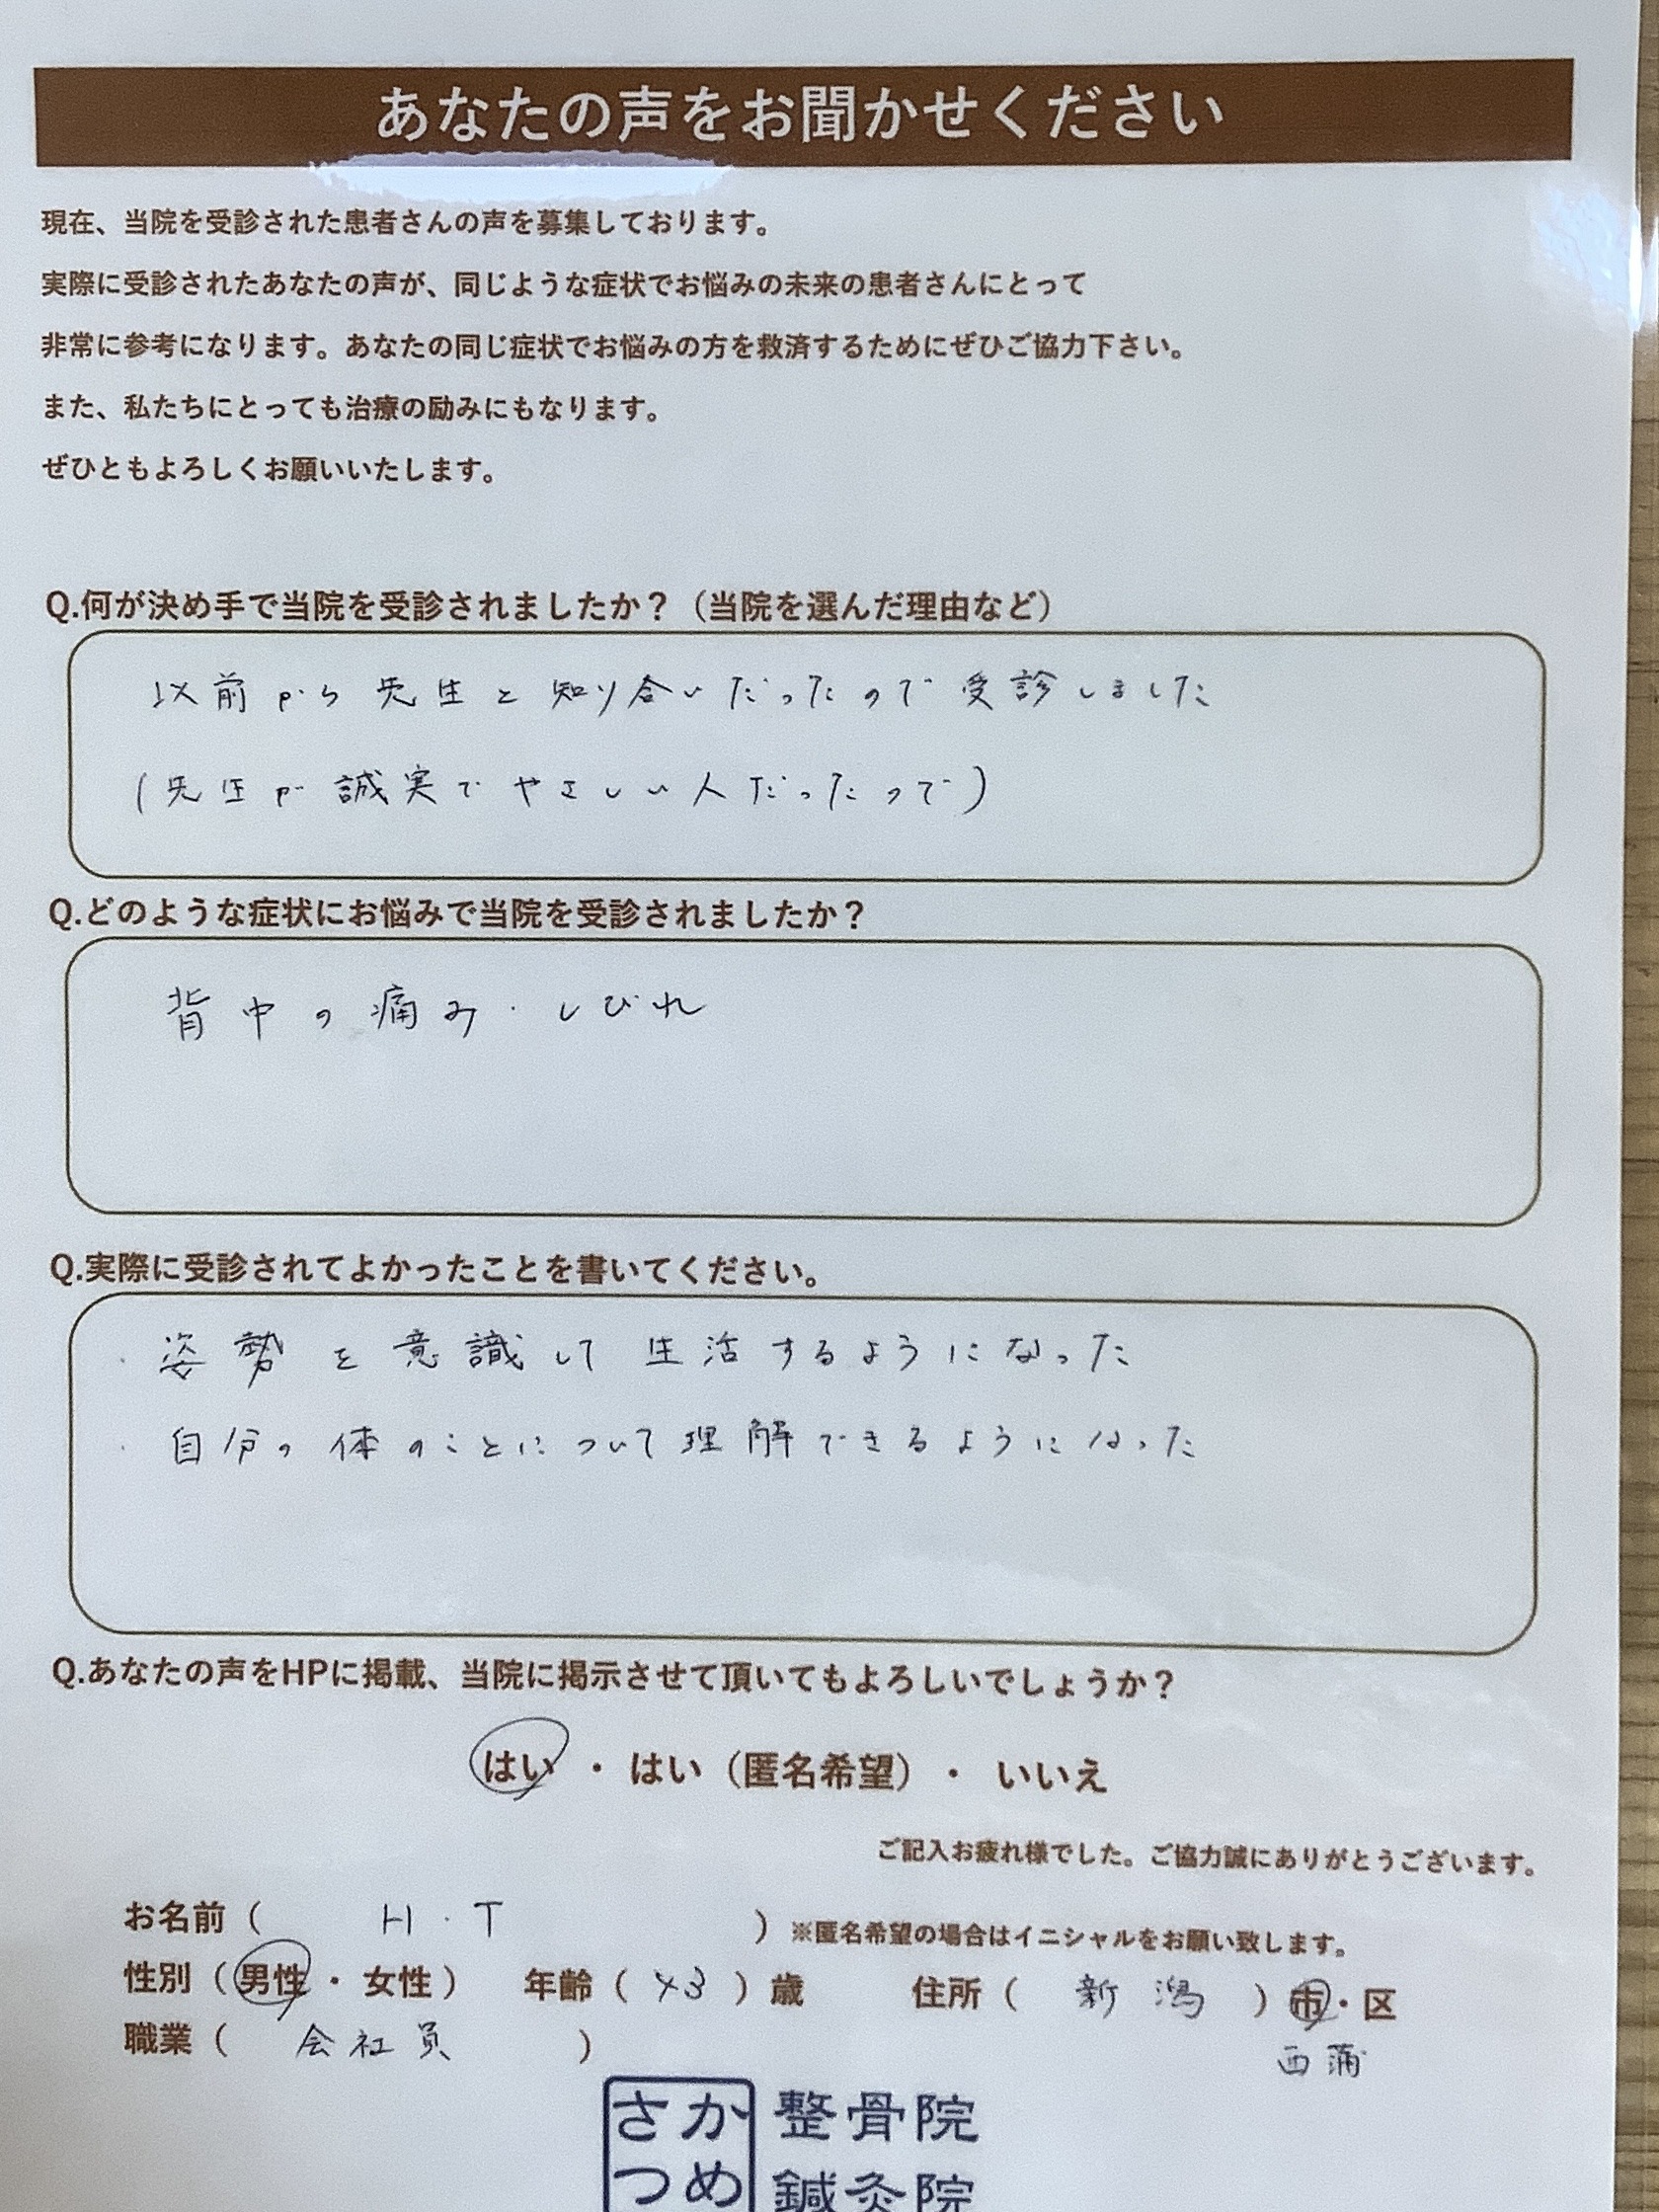 あなたの声をお聞かせください
現在、当院を受診された患者さんの声を募集しております。
実際に受診されたあなたの声が、同じような症状でお悩みの未来の患者さんにとって
非常に参考になります。あなたの同じ症状でお悩みの方を救済するためにぜひご協力下さい。
また、私たちにとっても治療の励みにもなります。
ぜひともよろしくお願いいたします。
Q.何が決め手で当院を受診されましたか？（当院を選んだ理由など）
以前から先生と知り合いだったので受診しました
(先生が誠実でやさしい人だったので)
Q.どのような症状にお悩みで当院を受診されましたか？
背中の痛み・しびれ
Q.実際に受診されてよかったことを書いてください。
・姿勢を意識して生活するようになった
・自分の体のことについて理解できるようになった
Q.あなたの声をHPに掲載、当院に掲示させて頂いてもよろしいでしょうか？
はい ・ はい（匿名希望）・ いいえ
ご記入お疲れ様でした。ご協力誠にありがとうございます。
お名前（ H・T ）※匿名希望の場合はイニシャルをお願い致します。
性別（男性・女性） 年齢（43）歳 住所（新潟）市・区
職業（会社員） 西蒲
さか 整骨院
つめ 鍼灸院